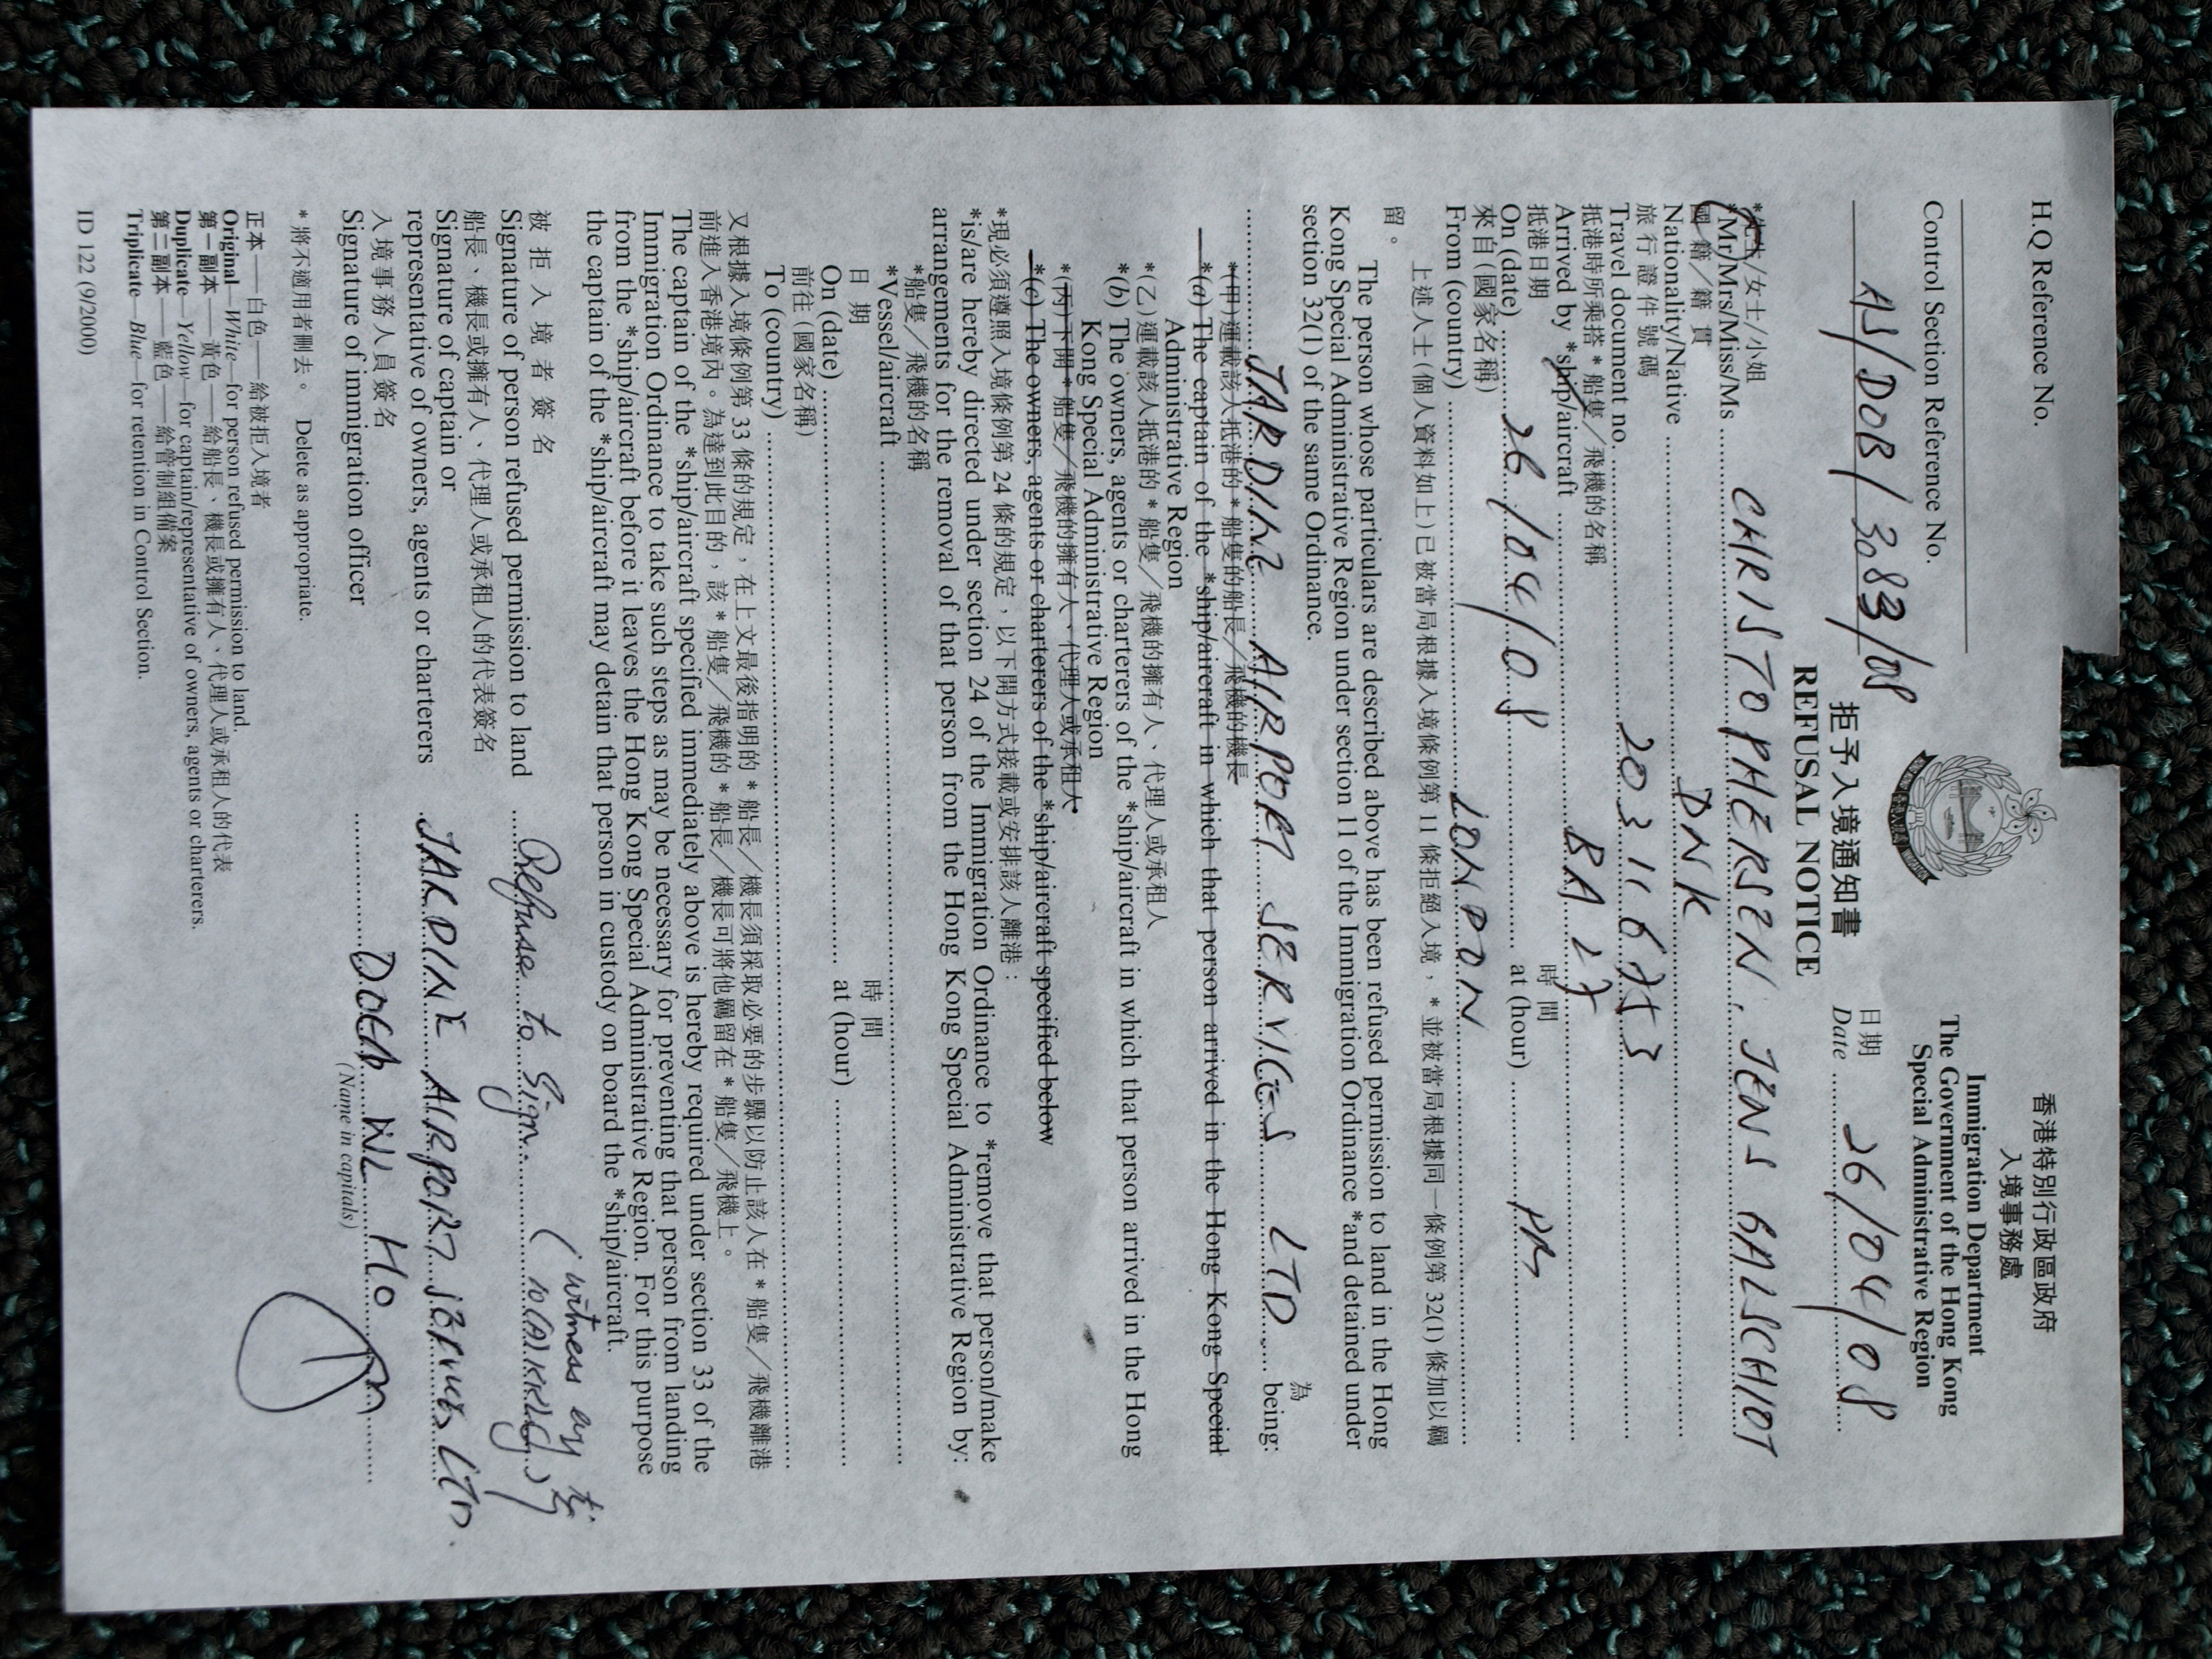 H.Q Reference No.
香港特別行政區政府
入境事務處
Immigration Department
The Government of the Hong Kong
Special Administrative Region
Control Section Reference No.
AS/DOB/3083/08
拒予入境通知書
REFUSAL NOTICE
日期
Date 26/04/08
*先生/女士/小姐
*Mr/Mrs/Miss/Ms CHRISTOPHERSEN, JENS GALSCHIOT
國籍/籍貫
Nationality/Native DNK
旅行證件號碼
Travel document no. 203116753
抵港時所乘搭*船隻/飛機的名稱
Arrived by *ship/aircraft BA 27
抵港日期 時間
On (date) 26/04/08 at (hour) PM
來自(國家名稱)
From (country) LONDON
上述人士(個人資料如上)已被當局根據入境條例第 11 條拒絕入境,*並被當局根據同一條例第 32(1) 條加以羈
留。
The person whose particulars are described above has been refused permission to land in the Hong
Kong Special Administrative Region under section 11 of the Immigration Ordinance *and detained under
section 32(1) of the same Ordinance.
為
JARDINE AIRPORT SERVICES LTD. being:
*(甲)運載該人抵港的*船隻的船長/飛機的機長
*(a) The captain of the *ship/aircraft in which that person arrived in the Hong Kong Special
Administrative Region
*(乙)運載該人抵港的*船隻/飛機的擁有人、代理人或承租人
*(b) The owners, agents or charterers of the *ship/aircraft in which that person arrived in the Hong
Kong Special Administrative Region
*(丙)下開*船隻/飛機的擁有人、代理人或承租人
*(c) The owners, agents or charterers of the *ship/aircraft specified below
*現必須遵照入境條例第 24 條的規定,以下開方式接載或安排該人離港:
*is/are hereby directed under section 24 of the Immigration Ordinance to *remove that person/make
arrangements for the removal of that person from the Hong Kong Special Administrative Region by:
*船隻/飛機的名稱
*Vessel/aircraft
日期 時間
On (date) at (hour)
前往(國家名稱)
To (country)
又根據入境條例第 33 條的規定,在上文最後指明的*船長/機長須採取必要的步驟以防止該人在*船隻/飛機離港
前進入香港境內。為達到此目的,該*船隻/飛機的*船長/機長可將他羈留在*船隻/飛機上。
The captain of the *ship/aircraft specified immediately above is hereby required under section 33 of the
Immigration Ordinance to take such steps as may be necessary for preventing that person from landing
from the *ship/aircraft before it leaves the Hong Kong Special Administrative Region. For this purpose
the captain of the *ship/aircraft may detain that person in custody on board the *ship/aircraft.
被拒入境者簽名
Signature of person refused permission to land Refuse to Sign. (witness by
船長、機長或擁有人、代理人或承租人的代表簽名
Signature of captain or
representative of owners, agents or charterers JARDINE AIRPORT SERVICES LTD.
入境事務人員簽名
Signature of immigration officer HO
(Name in capitals)
*將不適用者刪去。 Delete as appropriate.
正本——白色——給被拒入境者
Original—White—for person refused permission to land.
第一副本——黃色——給船長、機長或擁有人、代理人或承租人的代表
Duplicate—Yellow—for captain/representative of owners, agents or charterers.
第二副本——藍色——給管制組備案
Triplicate—Blue—for retention in Control Section.
ID 122 (9/2000)